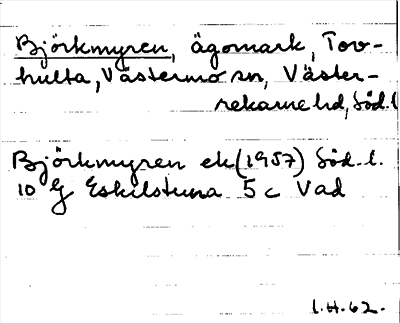 Björkmyren, ägomark, Tov-
hulta, Västermo sn, Väster-
rekarne hd, Söd.l
Björkmyren ek (1957) Söd.l.
10 G Eskilstuna 5 c Vad
I.H.62.